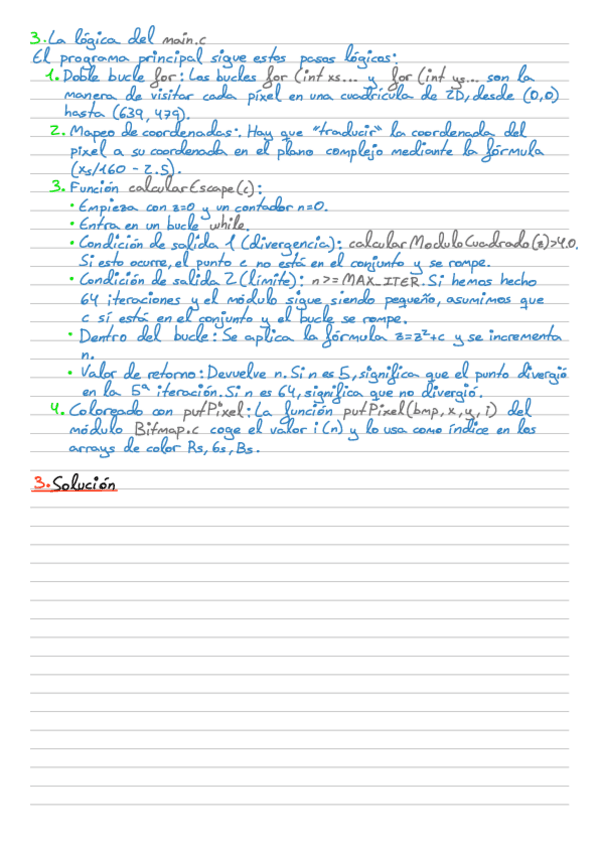 3. La lógica del main.c
El programa principal sigue estos pasos lógicos:
1. Doble bucle for: Los bucles for (int xs... y for (int ys... son la
manera de visitar cada píxel en una cuadrícula de 2D, desde (0,0)
hasta (639, 479).
2. Mapeo de coordenadas: Hay que "traducir" la coordenada del
píxel a su coordenada en el plano complejo mediante la fórmula
(xs/160 - 2.5).
3. Función calcularEscape(c):
• Empieza con z=0 y un contador n=0.
• Entra en un bucle while.
• Condición de salida 1 (divergencia): calcularModuloCuadrado(z)>4.0.
Si esto ocurre, el punto c no está en el conjunto y se rompe.
• Condición de salida 2 (límite): n>=MAX_ITER. Si hemos hecho
64 iteraciones y el módulo sigue siendo pequeño, asumimos que
c sí está en el conjunto y el bucle se rompe.
• Dentro del bucle: Se aplica la fórmula z=z²+c y se incrementa
n.
• Valor de retorno: Devuelve n. Si n es 5, significa que el punto divergió
en la 5ª iteración. Si n es 64, significa que no divergió.
4. Coloreado con putPixel: La función putPixel(bmp, x, y, i) del
módulo Bitmap.c coge el valor i (n) y lo usa como índice en los
arrays de color Rs, Gs, Bs.
3. Solución